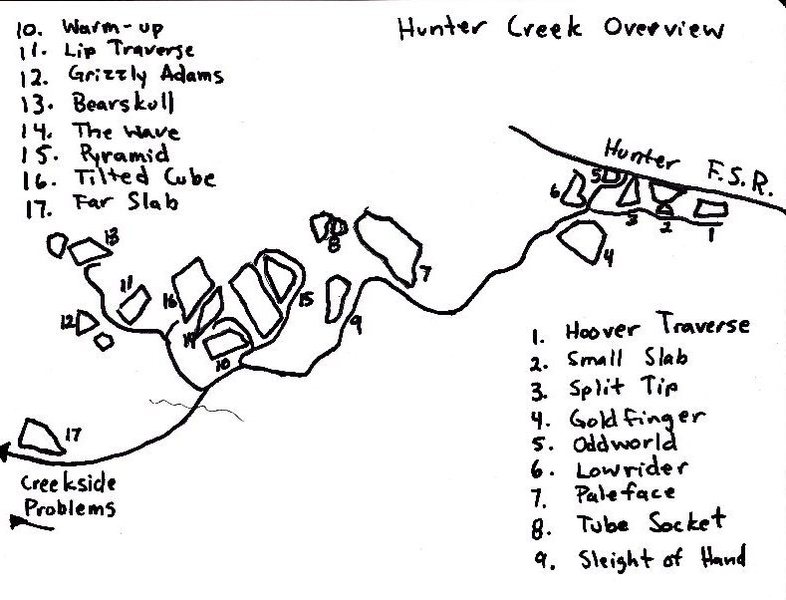 Hunter Creek Overview
10. Warm-up
11. Lip Traverse
12. Grizzly Adams
13. Bearskull
14. The Wave
15. Pyramid
16. Tilted Cube
17. Far Slab
Hunter F.S.R.
5
6
3
2
1
4
13
8
7
11
16
15
12
14
9
10
17
1. Hoover Traverse
2. Small Slab
3. Split Tip
4. Goldfinger
5. Oddworld
6. Lowrider
7. Paleface
8. Tube Socket
9. Sleight of Hand
Creekside
Problems